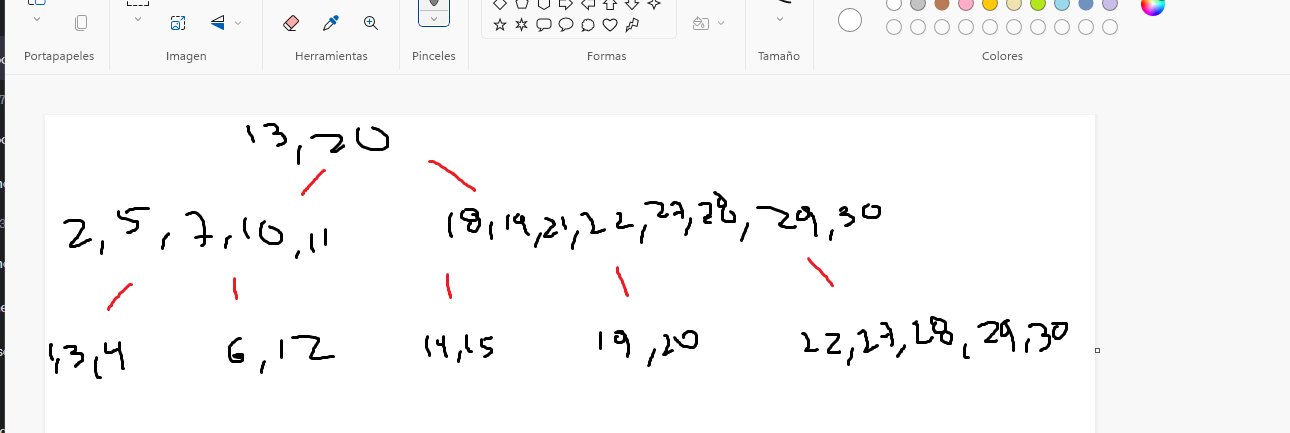 Portapapeles Imagen Herramientas Pinceles Formas Tamaño Colores
13,20
2,5,7,10,11 18,19,21,22,27,28,29,30
1,3,4 6,12 14,15 19,20 22,27,28,29,30